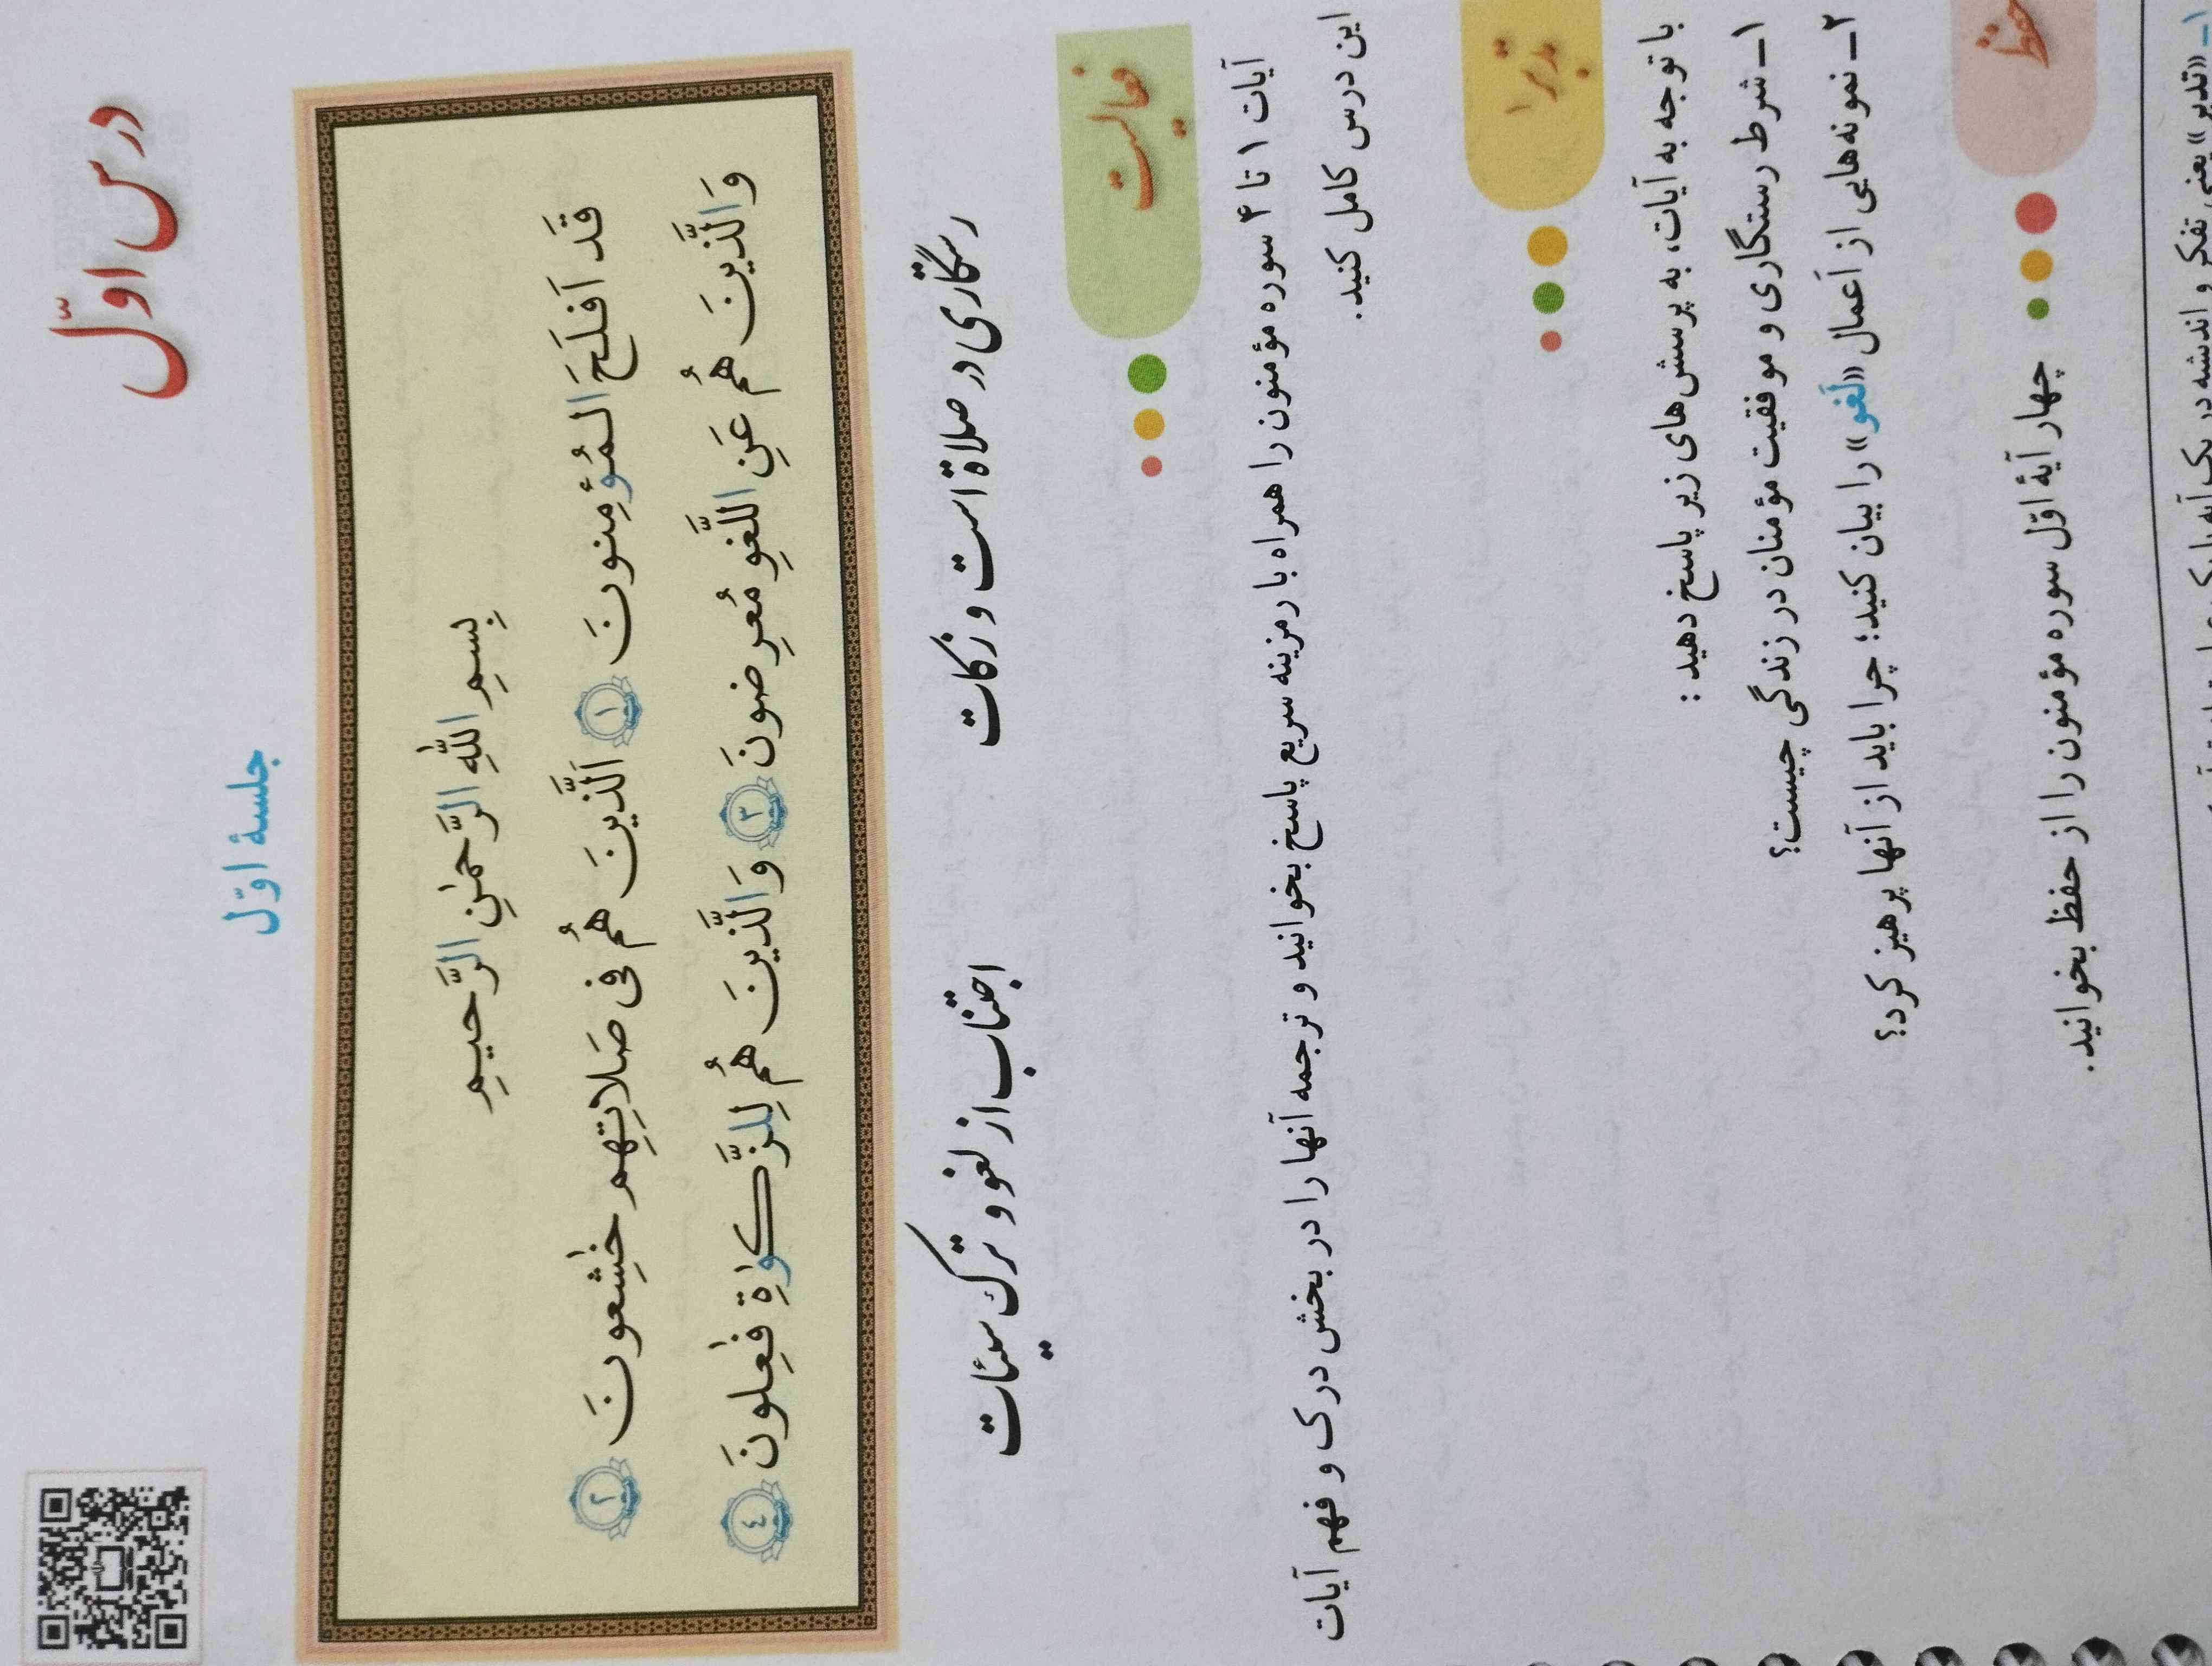 درس اوّل
جلسهٔ اوّل
بِسمِ اللّٰهِ الرَّحمٰنِ الرَّحیمِ
قَد اَفلَحَ المُؤمِنونَ ١ اَلَّذینَ هُم فی صَلاتِهِم خٰشِعونَ ٢
وَالَّذینَ هُم عَنِ اللَّغوِ مُعرِضونَ ٣ وَالَّذینَ هُم لِلزَّکوٰةِ فٰعِلونَ ٤
رستگاری در صلاة است و زکات
اجتناب از لغو و ترک سیئات
فعالیت
آیات ۱ تا ۴ سوره مؤمنون را همراه با رمزینه سریع پاسخ بخوانید و ترجمه آنها را در بخش درک و فهم آیات
این درس کامل کنید.
تدبر ۱
با توجه به آیات، به پرسش‌های زیر پاسخ دهید :
۱ــ شرط رستگاری و موفقیت مؤمنان در زندگی چیست؟
۲ــ نمونه‌هایی از اَعمال «لَغو» را بیان کنید؛ چرا باید از آنها پرهیز کرد؟
حفظ
چهار آیهٔ اوّل سوره مؤمنون را از حفظ بخوانید.
۱ــ «تدبر» یعنی تفکر و اندیشه در یک آیه یا